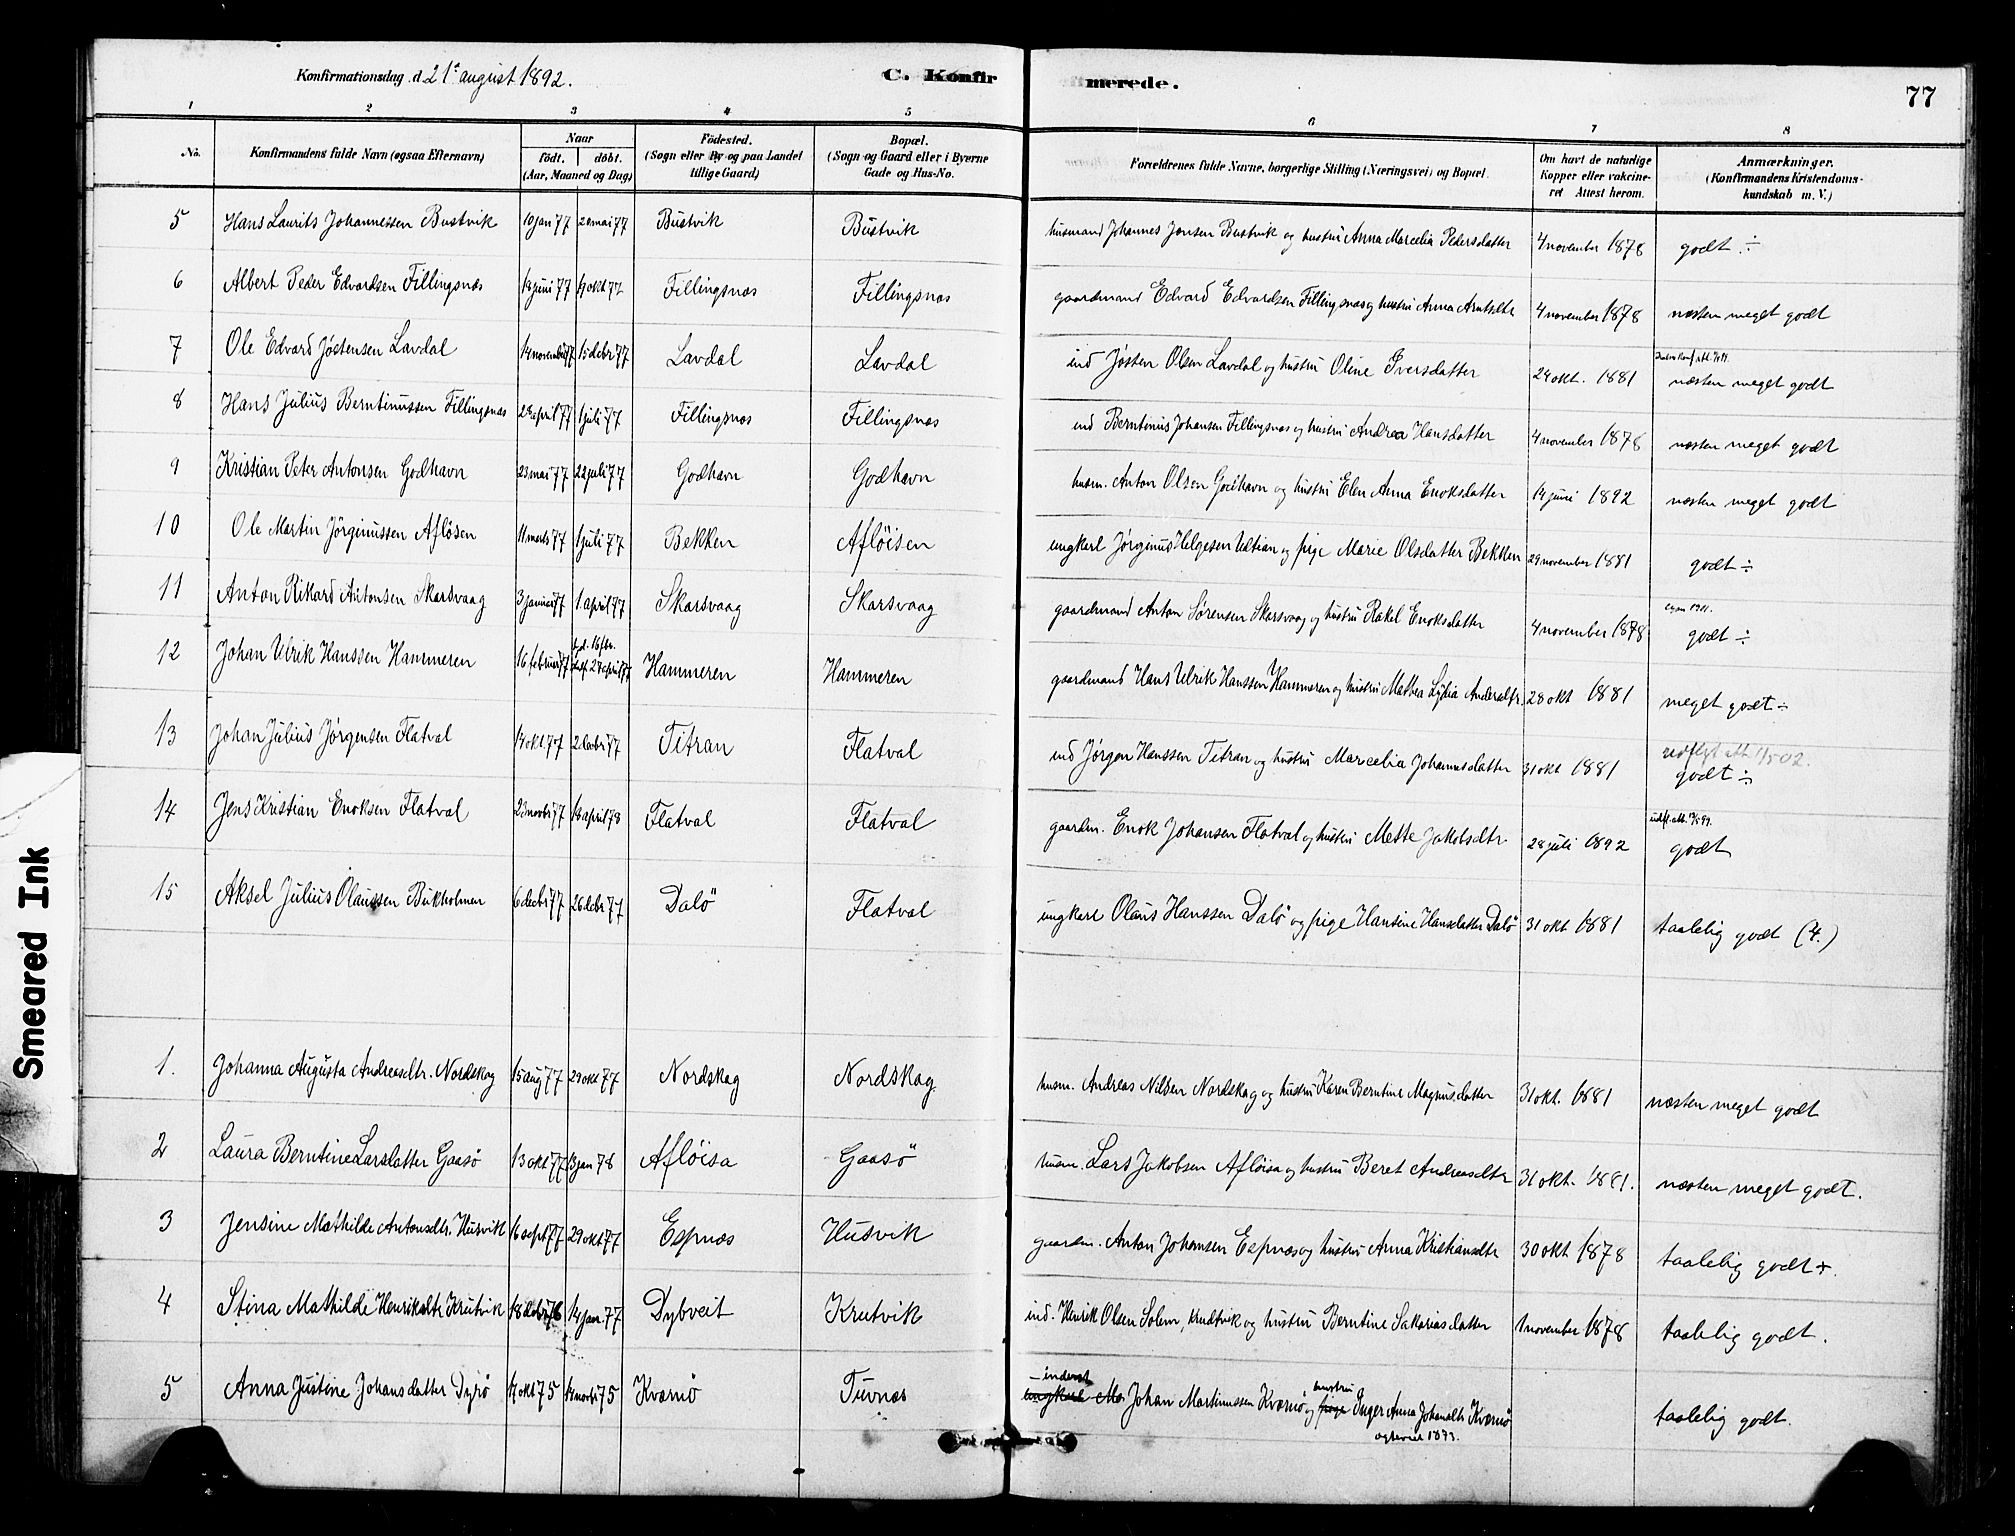 Konfirmationsdag d. 21de august 1892. C. Konfirmerede. 77
1 2 3 4 5 6 7 8
No. Konfirmandens fulde Navn (ogsaa Efternavn) Naar födt. döbt. (Aar, Maaned og Dag) Födested. (Sogn eller By og paa Landet tillige Gaard) Bopæl. (Sogn og Gaard eller i Byerne Gade og Hus-No. Forældrenes fulde Navne, borgerlige Stilling (Næringsvei) og Bopæl. Om havt de naturlige Kopper eller vakcineret Attest herom. Anmærkninger. (Konfirmandens Kristendomskundskab m. V.)
5 Hans Laurits Johannessen Bustvik 10 jan 77 20 mai 77 Bustvik Bustvik husmand Johannes Jensen Bustvik og hustru Anna Marcelia Pedersdatter 4 november 1878 godt ÷
6 Albert Peder Edvardsen Fillingsnæs juni 77 okt 77 Fillingsnæs Fillingsnæs gaardmand Edvard Edvardsen Fillingsnæs og hustru Anna Arntsdtr 4 november 1878 næsten meget godt
7 Ole Edvard Jöstensen Lavdal 14 novemb 77 15 debr 77 Lavdal Lavdal ind Jösten Olsen Lavdal og hustru Oline Iversdatter 24 okt. 1881 næsten meget godt
8 Hans Julius Berntinussen Fillingsnæs april 77 1 juli 77 Fillingsnæs Fillingsnæs ind Berntinus Johansen Fillingsnæs og hustru Andrea Hansdatter 4 november 1878 næsten meget godt
9 Kristian Peter Antonsen Godhavn 23 mai 77 22 juli 77 Godhavn Godhavn husm. Anton Olsen Godhavn og hustru Elen Anna Enoksdatter 14 juni 1892 næsten meget godt
10 Ole Martin Jörginussen Aflösen 11 marts 77 1 juli 77 Bekken Aflöisen ungkarl Jörginus Helgesen Ulvan og pige Marie Olsdatter Bekken 29 november 1881 godt ÷
11 Anton Rikard Antonsen Skarsvaag 3 januar 77 1 april 77 Skarsvaag Skarsvaag gaardmand Anton Sörensen Skarsvaag og hustru Rakel Enoksdatter 4 november 1878 godt ÷
12 Johan Ulrik Hanssen Hammeren 16 februar 77 hjd. 16 fbr. stadf. 27 april 77 Hammeren Hammeren gaardmand Hans Ulrik Hanssen Hammeren og hustru Mathea Lydia Andersdtr. 28 okt 1881 meget godt ÷
13 Johan Julius Jörgensen Flatval 14 okt 77 2 debr 77 Titran Flatval ind Jörgen Hanssen Titran og hustru Marcelia Johannesdatter 31 okt 1881 godt ÷
14 Jens Kristian Enoksen Flatval 23 novbr 77 april 78 Flatval Flatval gaardm. Enok Johansen Flatval og hustru Mette Jakobsdtr 28 juli 1892 godt
15 Aksel Julius Olaussen Bukholmen 6 decbr 77 26 debr 77 Dalö Flatval ungkarl Olaus Hanssen Dalö og pige Hansine Hansdatter Dalö 31 okt 1881 taalelig godt (4.)
1. Johanna Augusta Andreasdtr. Nordskag 15 aug 77 29 okt 77 Nordskag Nordskag husm. Andreas Nilsen Nordskag og hustru Karen Berntine Magnusdatter 31 okt. 1881 næsten meget godt
2 Laura Berntine Larsdatter Gaasö 13 okt 77 3 jan 78 Aflöisa Gaasö husm. Lars Jakobsen Aflöisa og hustru Beret Andreasdtr 31 okt. 1881. næsten meget godt.
3 Jensine Mathilde Antonsdtr. Husvik 16 sept 77 29 okt 77 Espnæs Husvik gaardm. Anton Johansen Espnæs og hustru Anna Kristiansdtr 30 okt 1878 taalelig godt +.
4 Stina Mathilde Henriksdtr Krutvik 18 debr 76 14 jan. 77 Dybveit Krutvik ind. Henrik Olsen Solem, Krudtvik og hustru Berntine Sakariasdatter 1 november 1878 taalelig godt.
5 Anna Justine Johansdatter Dyrö 17 okt 75 14 novbr 75 Kværnö Tuvnæs inderst ungkarl Johan Martinussen Kværnö og hustru pige Inger Anna Johansdtr Kværnö taalelig godt.
ægteviet 1873.
Smeared Ink